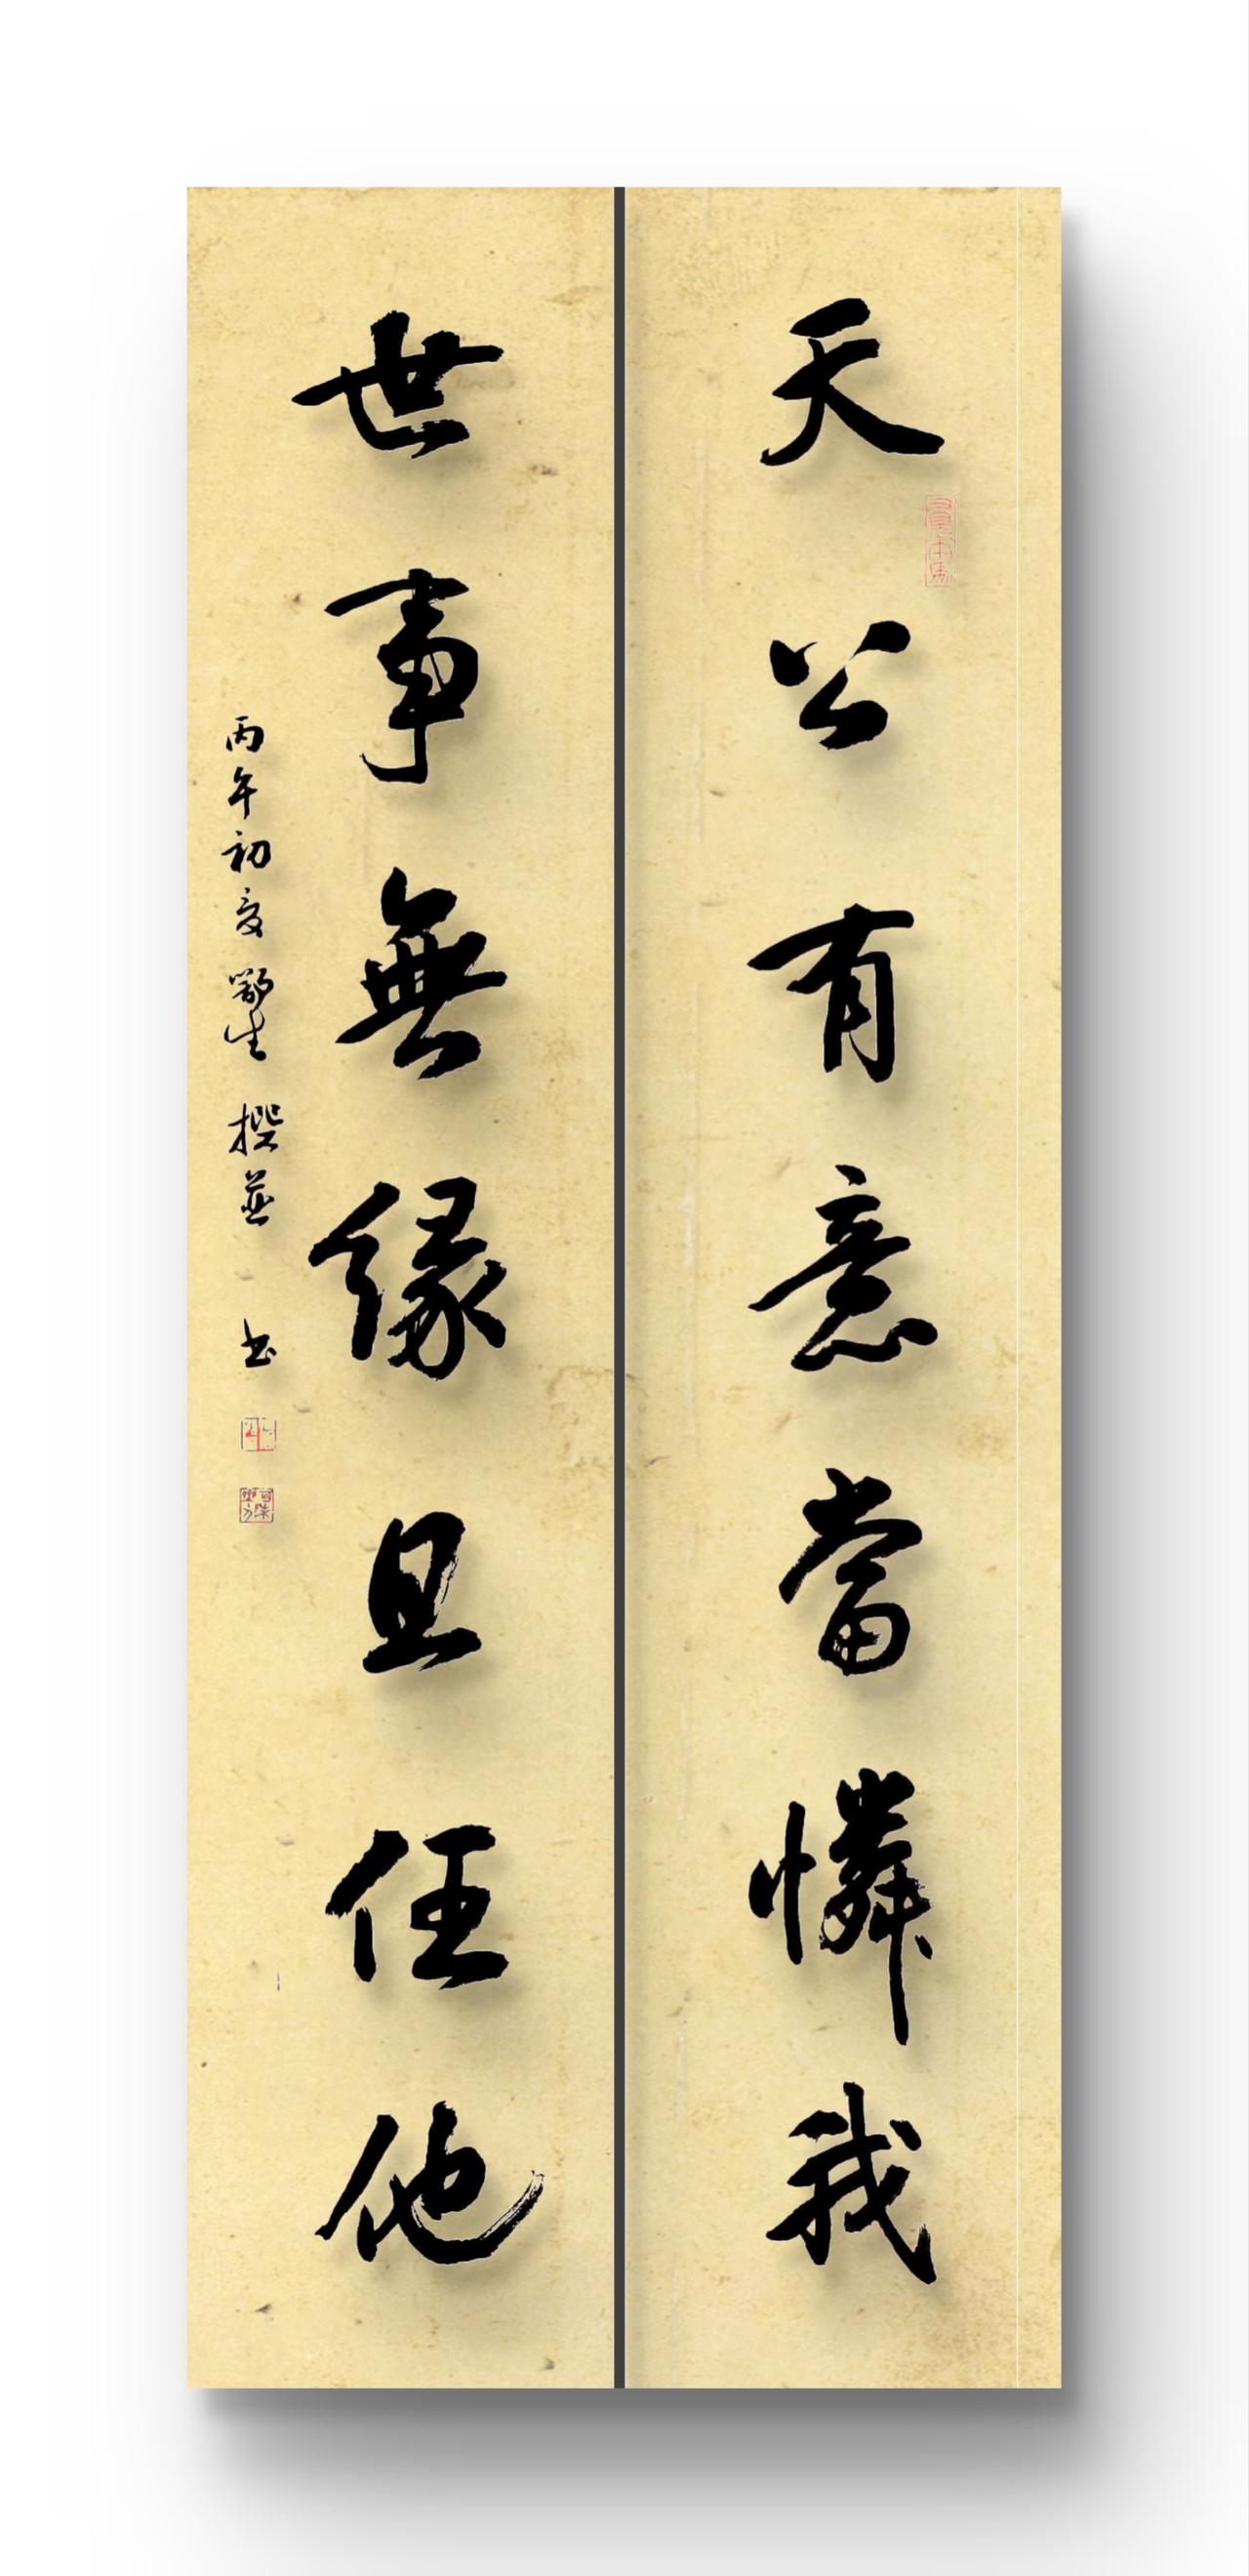 天公有意當憐我
世事無緣且任他
丙午初夏鄂生撰並书